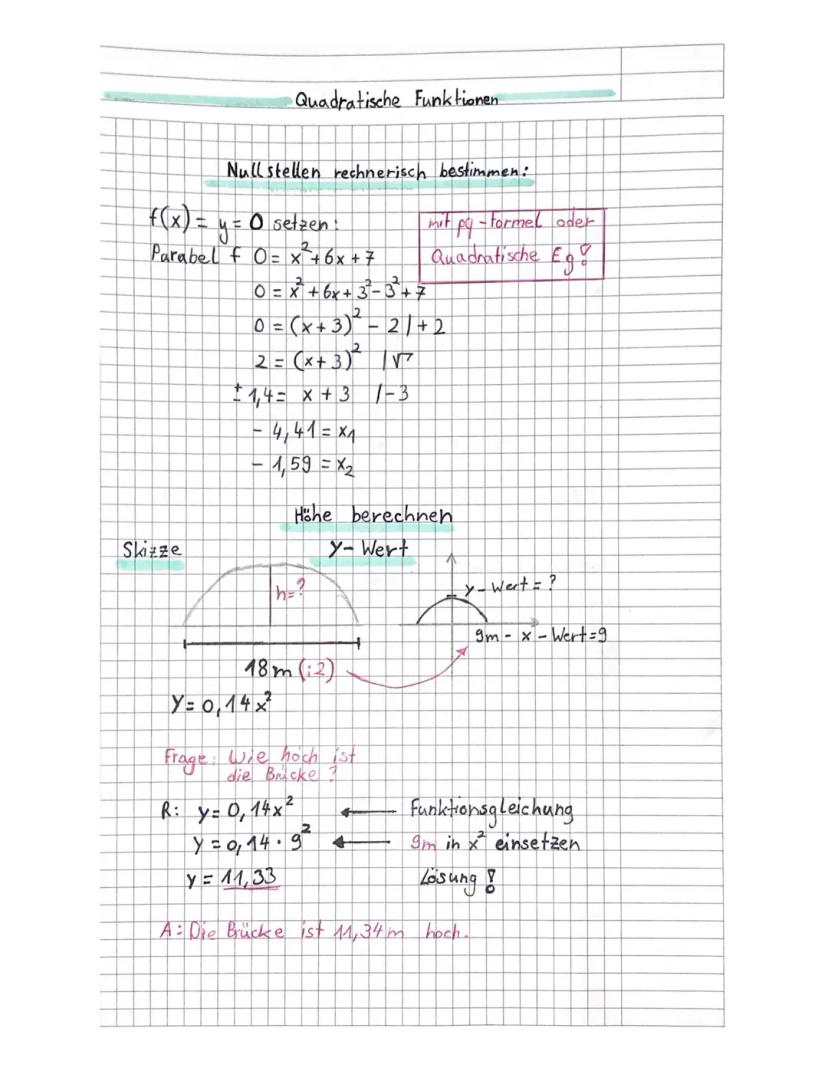 Quadratische Funktionen
Nullstellen rechnerisch bestimmen:
f(x) = y = 0 setzen:
mit pq-Formel oder
Quadratische Eg!
Parabel f 0 = x² + 6x + 7
0 = x² + 6x + 3² - 3² + 7
0 = (x + 3)² - 2 | + 2
2 = (x + 3)² | √
± 1,4 = x + 3 | - 3
- 4,41 = x₁
- 1,59 = x₂
Höhe berechnen
Skizze
y-Wert
h=?
y-Wert = ?
9m - x - Wert = 9
18m (:2)
Y = 0,14x²
Frage: Wie hoch ist
die Brücke?
R: y = 0,14x² ← Funktionsgleichung
y = 0,14 · 9² ← 9m in x² einsetzen
y = 11,33 Lösung!
A: Die Brücke ist 11,34m hoch.